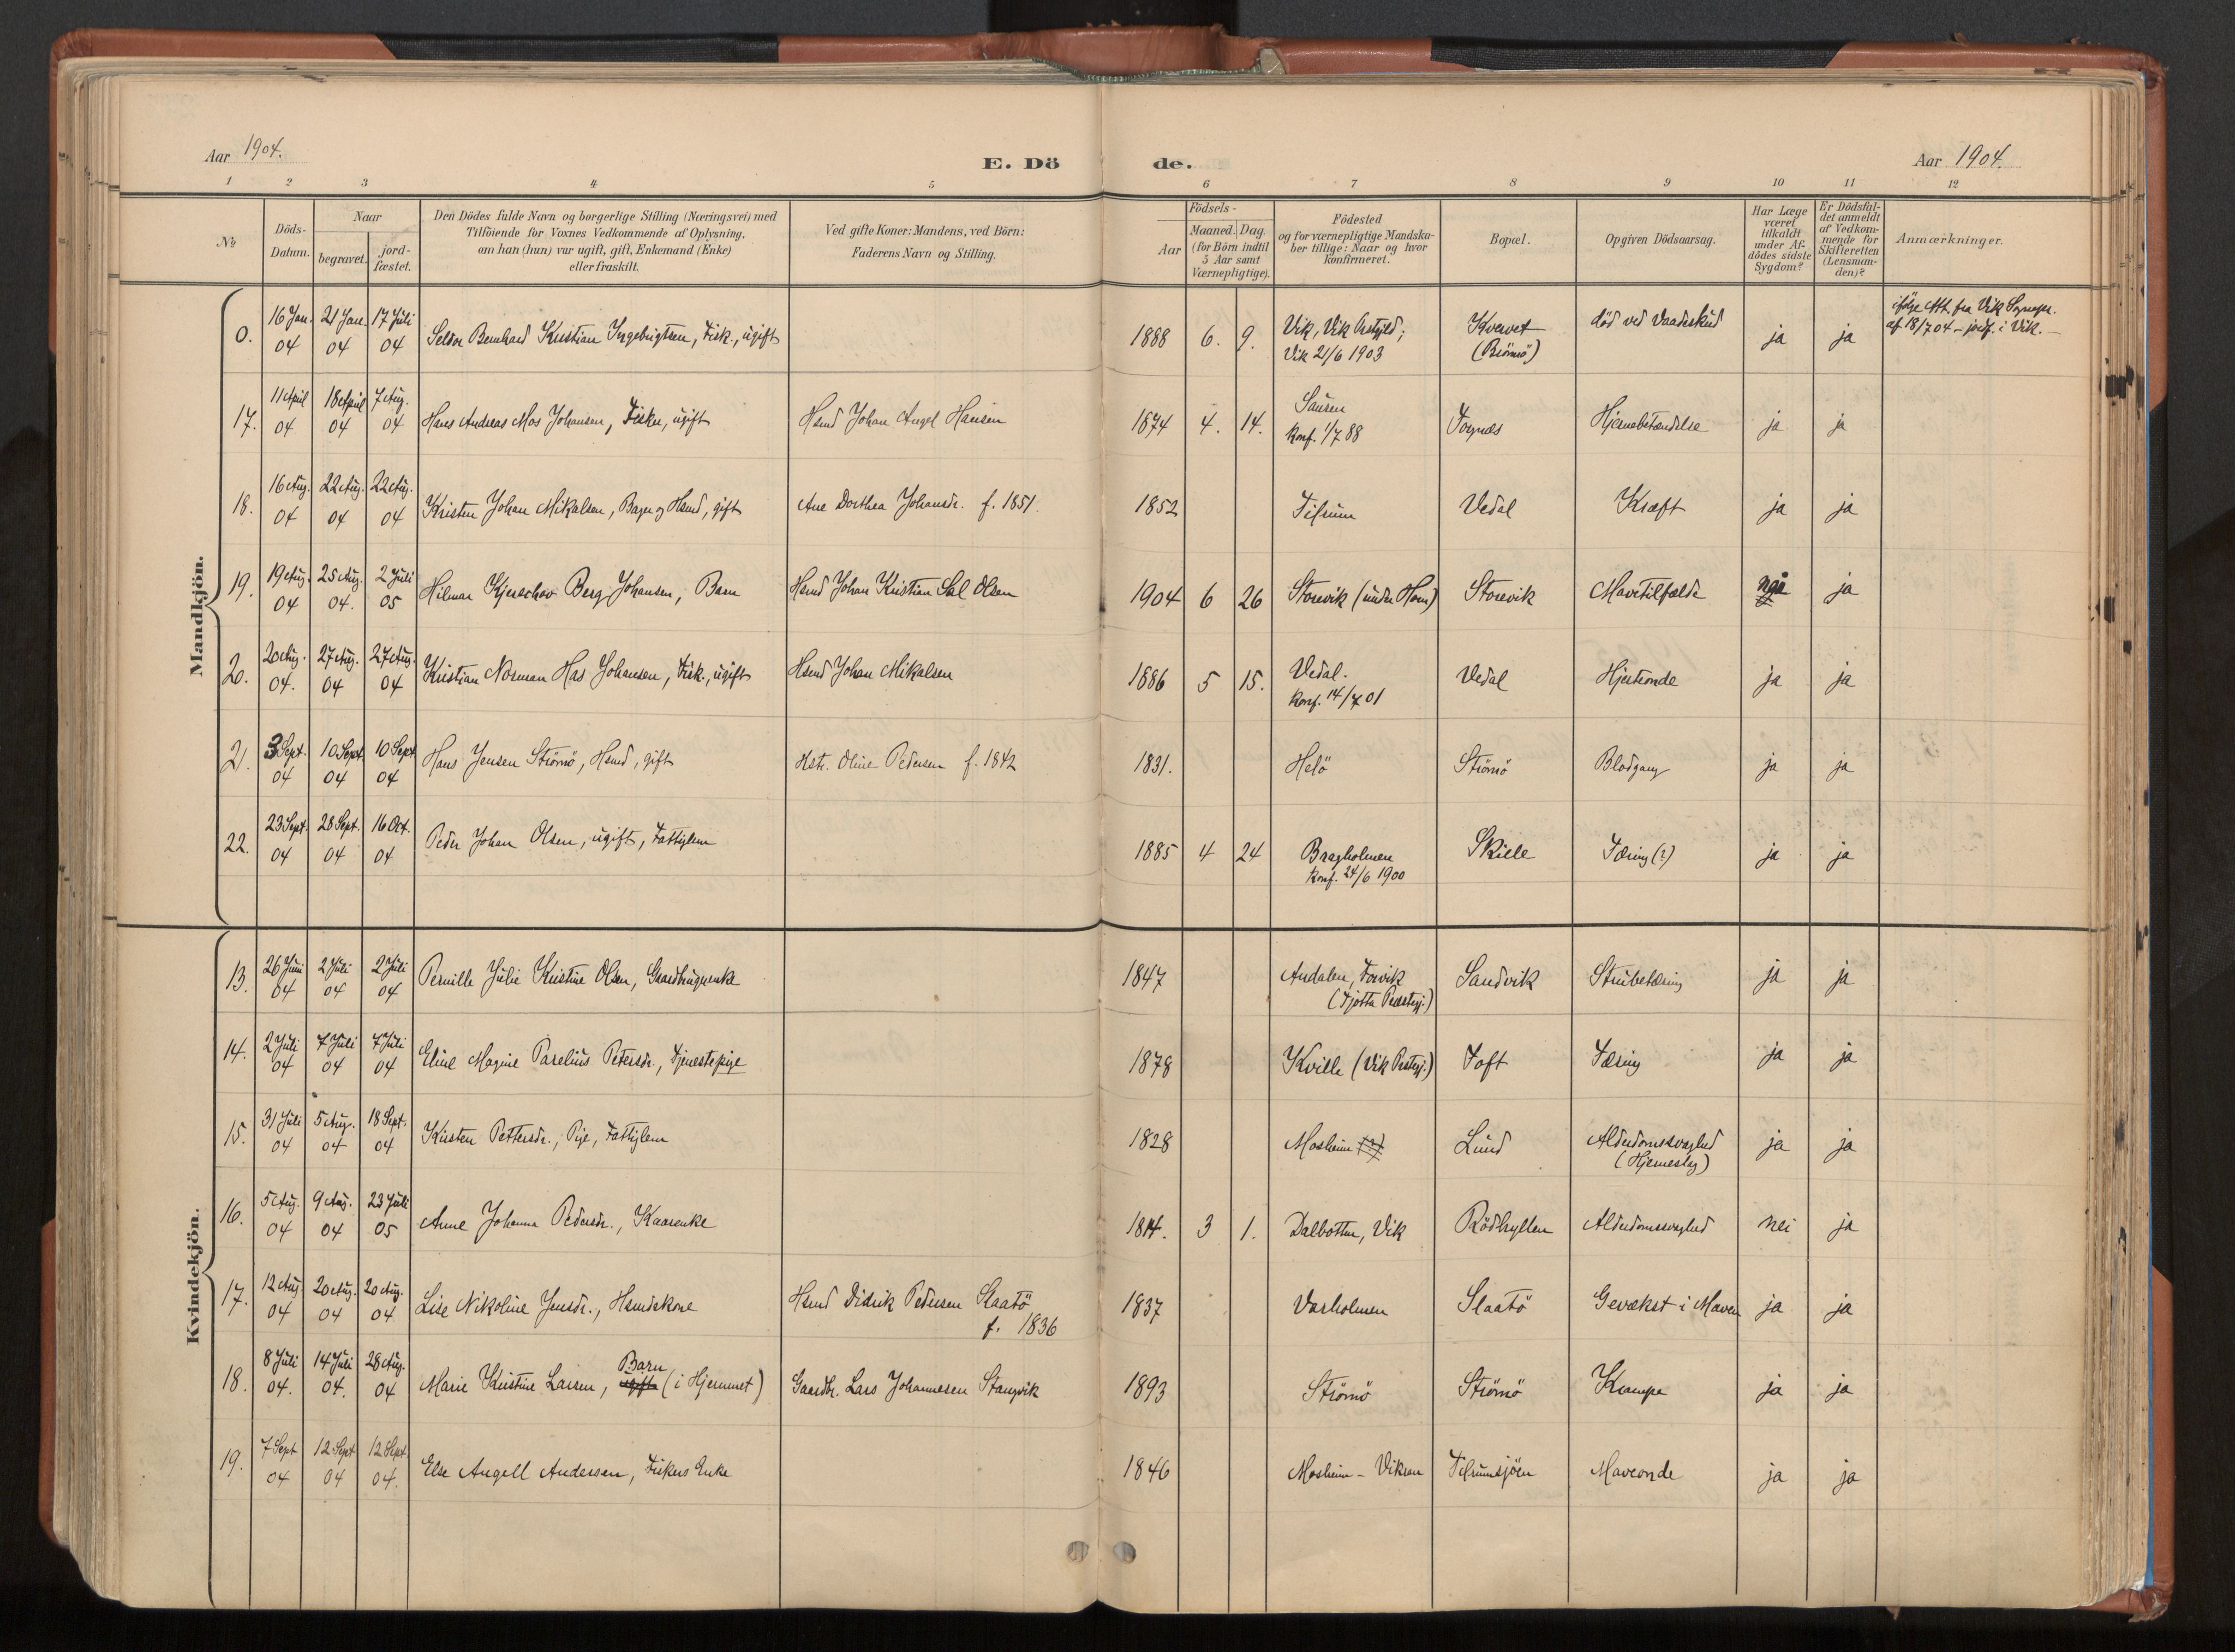 Aar 1904.
E. Dö de.
Aar 1904.
1 2 3 4 5 6 7 8 9 10 11 12
No
Döds-Datum.
Naar
begravet.
jord-fæstet.
Den Dödes fulde Navn og borgerlige Stilling (Næringsvei) med
Tilföiende for Voxnes Vedkommende af Oplysning.
om han (hun) var ugift, gift, Enkemand (Enke)
eller fraskilt.
Ved gifte Koner: Mandens, ved Börn:
Faderens Navn og Stilling.
Födsels-
Aar
Maaned. Dag.
(for Börn indtil
5 Aar samt
Værnepligtige).
Födested
og for værnepligtige Mandska-
ber tillige: Naar og hvor
konfirmeret.
Bopæl.
Opgiven Dödsaarsag.
Har Læge
været
tilkaldt
under Af-
dödes sidste
Sygdom?
Er Dödsfal-
det anmeldt
af Vedkom-
mende for
Skifteretten
(Lensman-
den)?
Anmærkninger.
Mandkjön.
0. 16 Jan. 04 21 Jan. 04 17 Juli 04 Bernhard Kristian Ingebrigtsen, Fisk., ugift 1888 6. 9. Vik, Vik Prstgjld; Kvervet død ved Vaadeskud ja ja ifølge Att. fra Vik Sognepr.
Vik 21/6 1903 (Brönnö) af 18/7 04 – jordf. i Vik. –
17. 11 April 04 18 April 04 7 Aug. 04 Hans Andreas Mos Johansen, Fisker, ugift Hsmd Johan Angel Hansen 1874 4. 14. Sausen Torgnæs Hjernebetændelse ja ja
Konf. 1/7 88
18. 16 Aug. 04 22 Aug. 04 22 Aug. 04 Kristen Johan Mikalsen, Bager og Hsmd, gift Ane Dorthea Johansdr. f. 1851. 1852 Tilrum Vedal Kræft ja ja
19. 19 Aug. 04 25 Aug. 04. 2 Juli 05 Hilmar Kjerschov Berg Johansen, Barn Hsmd Johan Kristian Sal Olsen 1904 6 26 Storvik (under Horn) Storevik Mavetilfælde ja
20. 20 Aug. 04. 27 Aug. 04 27 Aug. 04 Kristian Norman Has Johansen, Fisk., ugift Hsmd Johan Mikalsen 1886 5 15. Vedal. Vedal Hjerteonde ja ja
Konf. 14/7 01
21. 3 Sept. 04 10 Sept 04 10 Sept 04 Hans Jensen Strömö, Hsmd, gift Hstr. Oline Pedersen f. 1842 1831. Helö Strömö Blodgang ja ja
22. 23 Sept. 04 28 Sept. 04 16 Oct. 04 Peder Johan Olsen, ugift, Fattiglem 1885 4 24 Bragholmen Skille Tæring (?) ja ja
Konf. 24/6 1900
Kvindekjön.
13. 26 Juni 04 2 Juli 04 2 Juli 04 Pernille Julie Kristine Olsen, Gaardbrugerenke 1847 Andalen, Forvik Sandvik Strubetæring ja ja
(Tjötta Præstegj.)
14. 2 Juli 04 7 Juli 04 7 Juli 04 Eline Magine Parelius Petersdr., Tjenestepige 1878 Kville (Vik Prstegj.) Toft Tæring ja ja
15. 31 Juli 04 5 Aug. 04 18 Sept. 04 Kirsten Pettersdr., Pige, Fattiglem 1828 Mosheim (?) Lund Alderdomssvaghed ja ja
(Hjerneslag)
16. 5 Aug. 04 9 Aug. 04 23 Juli 05 Anne Johanna Pedersdr., Kaarenke 1814. 3 1. Dalbotten, Vik Rödhyllen Alderdomssvaghed nei ja
17. 12 Aug. 04 20 Aug. 04 20 Aug. 04 Lise Nikoline Jensdr., Hsmdskone Hsmd Didrik Pedersen Slaatö 1837 Varholmen Slaatö Gevækst i Maven ja ja
f. 1836
18. 8 Juli 04. 14 Juli 04. 28 Aug. 04 Marie Kristine Larsen, ugift Barn (i Hjemmet) Gaardbr. Lars Johannesen Stangvik 1893 Strömö Strömö Krampe ja ja
19. 7 Sept 04 12 Sept 04 12 Sept. 04. Else Angell Andersen, Fiskers Enke 1846 Mosheim – Viksen Tilrumsjöen Maveonde ja ja